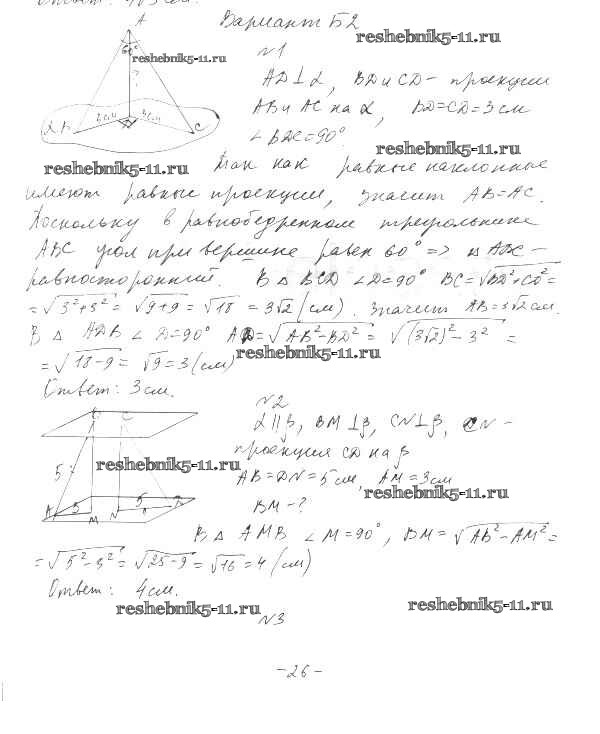 Вариант Б2
reshebnik5-11.ru
А
№1
reshebnik5-11.ru
60°
?
AD⊥α, BD и CD - проекции
AB и AC на α, BD=CD=3см
3см 3см
α B C
∠BDC=90°
reshebnik5-11.ru
reshebnik5-11.ru
Так как равные наклонные
имеют равные проекции, значит AB=AC.
Поскольку в равнобедренном треугольнике
ABC угол при вершине равен 60° => △ABC -
равносторонний. В △ BCD ∠D=90° BC=√BD²+CD²=
=√3²+3²=√9+9=√18=3√2(см). Значит AB=3√2см.
В △ ADB ∠D=90° AD=√AB²-BD²=√(3√2)²-3²=
=√18-9=√9=3(см)
reshebnik5-11.ru
Ответ: 3см.
№2
α||β, BM⊥β, CN⊥β, DN-
C
проекция CD на β
5
reshebnik5-11.ru
AB=DN=5см, AM=3см
reshebnik5-11.ru
A 3 M N 5
BM-?
В △ AMB ∠M=90°, BM=√AB²-AM²=
=√5²-3²=√25-9=√16=4(см)
Ответ: 4см.
reshebnik5-11.ru
reshebnik5-11.ru
№3
-26-